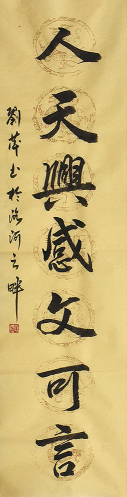 人天興感文可言
劉萍書於洛河之畔